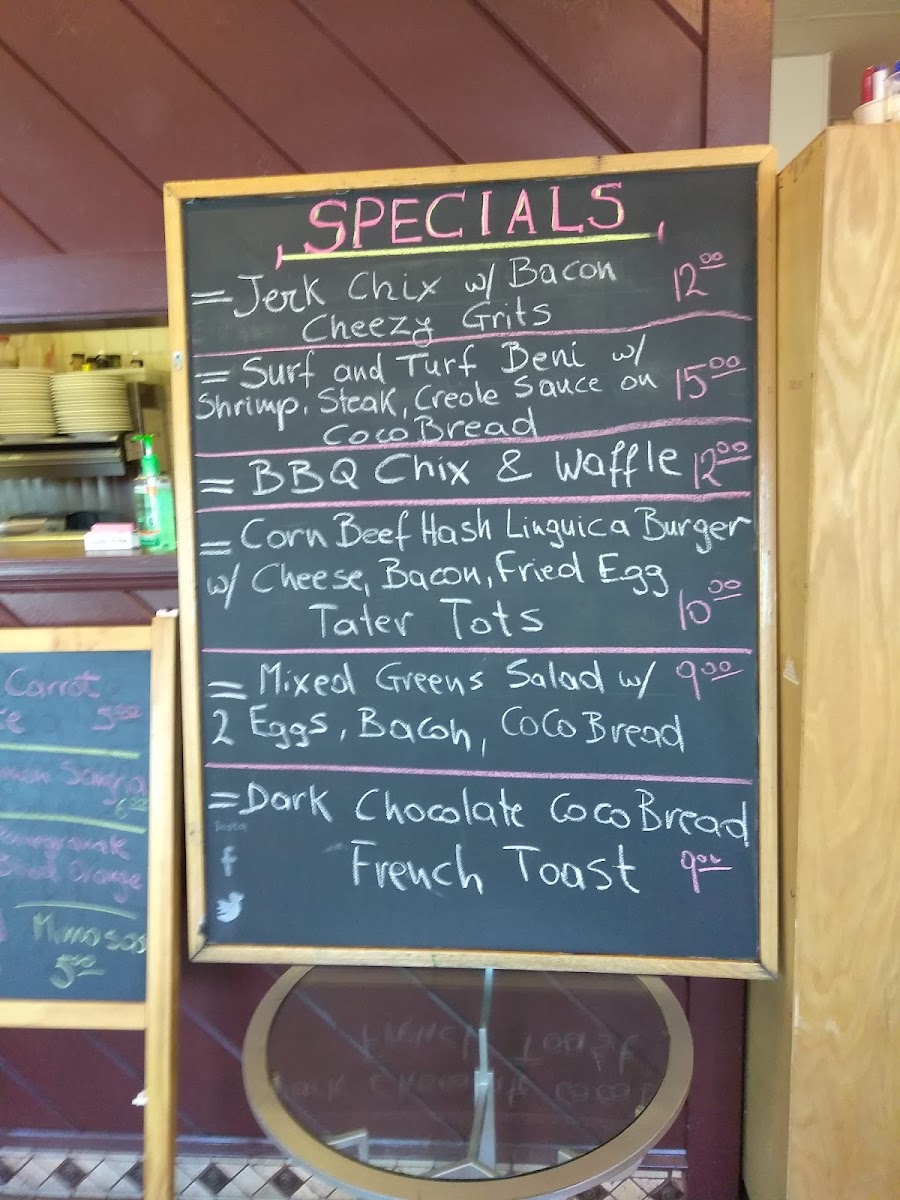 SPECIALS
= Jerk Chix w/ Bacon 12.00
Cheezy Grits
= Surf and Turf Beni w/
Shrimp, Steak, Creole Sauce on 15.00
CocoBread
= BBQ Chix & Waffle 12.00
= Corn Beef Hash Linguica Burger
w/ Cheese, Bacon, Fried Egg
Tater Tots 10.00
= Mixed Greens Salad w/ 9.00
2 Eggs, Bacon, CocoBread
= Dark Chocolate CocoBread
French Toast 9.00
Carrot
5.00
Sangria
6.00
Pomegranate
Blood Orange
Mimosas
5.00